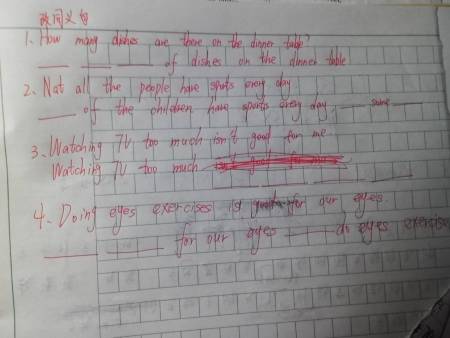 改同义句
1. How many dishes are there on the dinner table?
___ ___ ___ of dishes on the dinner table
2. Not all the people have sports every day
___ of the children have sports every day. ___ some ___
3. Watching TV too much isn't good for me
Watching TV too much ___ ___ ___
4. Doing eyes exercises is good for our eyes.
___ ___ for our eyes ___ do eyes exercise